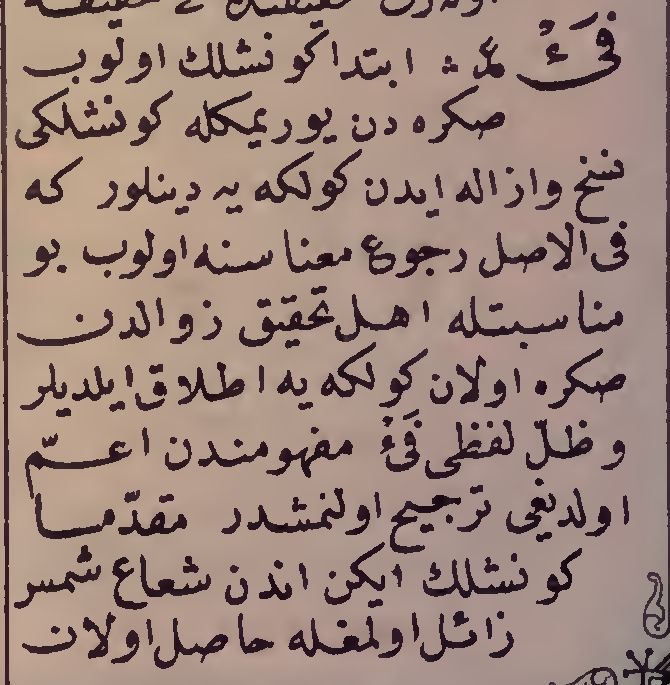 فَیْءْ عد : ابتدا كونشلك اولوب
صكره دن یوریمكله كونشلكی
نسخ وازاله ایدن كولكه یه دینلور كه
فی الاصل رجوع معناسنه اولوب بو
مناسبتله اهل تحقیق زوالدن
صكره اولان كولكه یه اطلاق ایلدیلر
و ظلّ لفظی فَیْءْ مفهومندن اعمّ
اولدیغی ترجیح اولنمشدر مقدّما
كونشلك ایكن اندن شعاع شمس
زائل اولمغله حاصل اولان